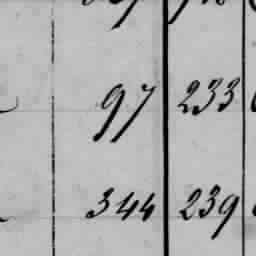 97 233
344 239